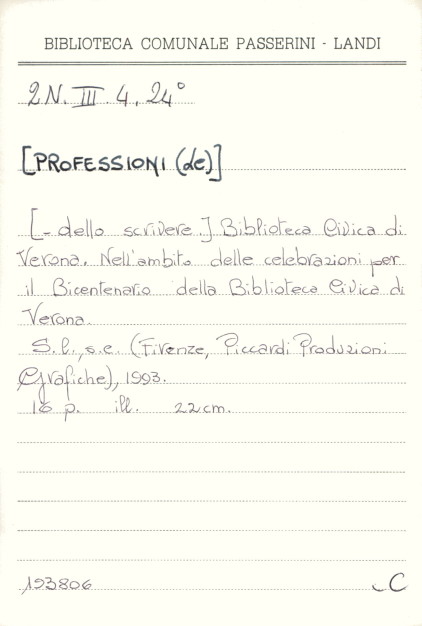 BIBLIOTECA COMUNALE PASSERINI - LANDI
2N. III. 4. 24°
[PROFESSIONI (le)]
[- dello scrivere.] Biblioteca Civica di
Verona. Nell'ambito delle celebrazioni per
il Bicentenario della Biblioteca Civica di
Verona.
S.l., s.e. (Firenze, Piccardi Produzioni
Grafiche), 1993.
16 p. ill. 22cm.
193806
C